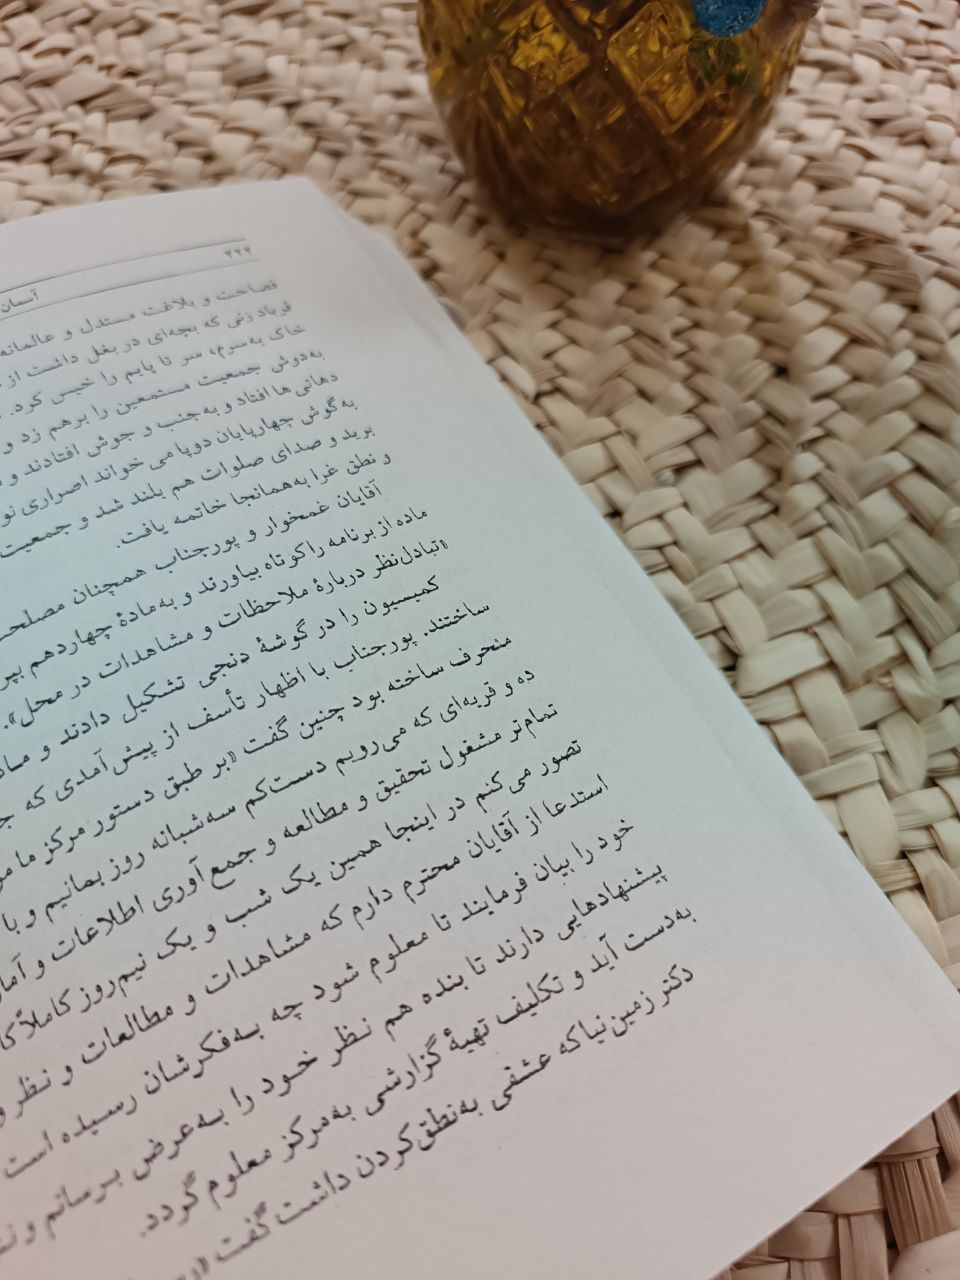 ۲۳۲
آسمان
فصاحت و بلاغت مستدل و عالمانه
فریاد زنی که بچه‌ای در بغل داشت از
خاک به‌سرم، سر تا پایم را خیس کرد.
به‌دوش جمعیت مستمعین را برهم زد و
دهاتی ها افتاد و به‌جنب و جوش افتادند و
به‌گوش چهارپایان دوپا می خواند اصراری
برید و صدای صلوات هم بلند شد و جمعیت
و نطق غرا به‌همانجا خاتمه یافت.
آقایان غمخوار و پورجناب همچنان
ماده از برنامه را کوتاه بیاورند و به‌مادهٔ چهاردهم
«تبادل‌نظر دربارهٔ ملاحظات و مشاهدات در محل».
کمیسیون را در گوشهٔ دنجی تشکیل دادند و
ساختند. پورجناب با اظهار تأسف از پیش‌آمدی که
منحرف ساخته بود چنین گفت «بر طبق دستور مرکز ما
ده و قریه‌ای که می‌رویم دست‌کم سه‌شبانه روز بمانیم و با
تمام‌تر مشغول تحقیق و مطالعه و جمع‌آوری اطلاعات و
تصور می‌کنم در اینجا همین یک شب و یک نیم‌روز کاملاً
استدعا از آقایان محترم دارم که مشاهدات و مطالعات و نظر
خود را بیان فرمایند تا معلوم شود چه به‌فکرشان رسیده است
پیشنهادهایی دارند تا بنده هم نظر خود را به‌عرض برسانم و
به‌دست آید و تکلیف تهیهٔ گزارشی به‌مرکز معلوم گردد.
دکتر زمین‌نیا که عشقی به‌نطق‌کردن داشت گفت